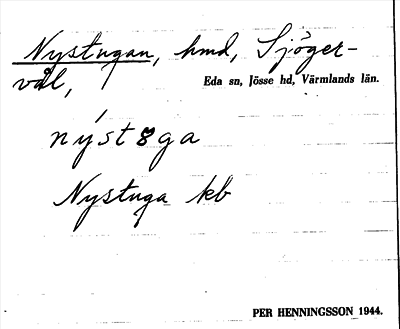 Nystugan, hmd, Sjöger-
vål,
Eda sn, Jösse hd, Värmlands län.
nýstôga
Nystuga kb
PER HENNINGSSON 1944.